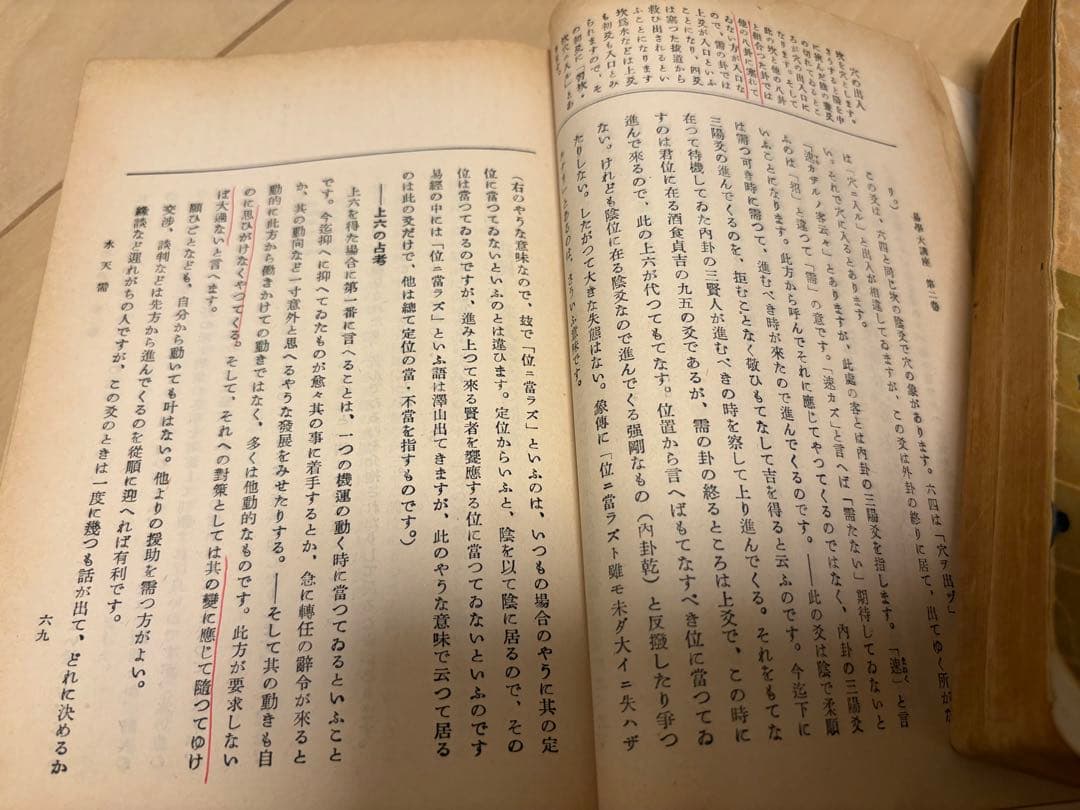 易學大講座 第二卷
穴の出入
坎を穴とします。
に挾んだ陰の蠱爻
の切れてゐるとこ
ろが穴の出入口に
なります。そして
此の坎と他の八卦
と組合つた卦では
他の八卦に塞れて
ゐない方が入口な
ので、需の卦では
上爻が入口といふ
ことになり、四爻
は塞つた後道から
救ひ出されるとい
ふことになります
坎爲水などは上爻
も初爻も入口とみ
られますので、そ
の初爻に「習坎、
坎穴ニ入ル」とあ
この爻は、六四と同じ坎の陰爻で穴の象があります。六四は「穴ヲ出ヅ」
は「穴ニ入ル」と出入が相違してゐますが、この爻は外卦の終りに居て、出てゆく所がな
い。それで穴に入るとあります。
「速カザルノ客云々」とありますが、此處の客とは内卦の三陽爻を指します。「速」と言
ふのは「招」と違つて「需」の意です。「速カズ」と言へば「需たない」期待してゐないと
いふことになります。此方から呼んでそれに應じてやつてくるのではなく、内卦の三陽爻
は需つ可き時に需つて、進むべき時が來たので進んでくるのです。――此の爻は陰で柔順
三陽爻の進んでくるのを、拒むことなく敬ひもてなして吉を得ると云ふのです。今迄下に
在つて待機してゐた内卦の三賢人が進むべきの時を察して上り進んでくる。それをもてな
すのは君位に在る酒食貞吉の九五の爻であるが、需の卦の終るところは上爻で、この時に
進んで來るので、此の上六が代つてもてなす。位置から言へばもてなすべき位に當つてゐ
ない。けれども陰位に在る陰爻なので進んでくる強剛なもの(内卦乾)と反撥したり爭つ
たりしない。したがつて大きな失態はない。象傳に「位ニ當ラズト雖モ未ダ大イニ失ハザ
(右のやうな意味なので、玆で「位ニ當ラズ」といふのは、いつもの場合のやうに其の定
位に當つてゐないといふのとは違ひます。定位からいふと、陰を以て陰に居るので、その
位は當つてゐるのですが、進み上つて來る賢者を饗應する位に當つてゐないといふのです
易經の中には「位ニ當ラズ」といふ語は澤山出てきますが、此のやうな意味で云つて居る
のは此の爻だけで、他は總て定位の當・不當を指すものです。)
――上六の占考
上六を得た場合に第一番に言へることは、一つの機運の動く時に當つてゐるといふこと
です。今迄抑へに抑へてゐたものが愈々其の事に着手するとか、急に轉任の辭令が來ると
か、其の動向など一寸意外と思へるやうな發展をみせたりする。――そして其の動きも自
動的に此方から働きかけての動きではなく、多くは他動的なものです。此方が要求しない
のに思ひがけなくやつてくる。そして、それへの對策としては其の變に應じて隨つてゆけ
ば大過ないと言へます。
願ひごとなども、自分から動いても叶はない。他よりの援助を需つ方がよい。
交渉、談判などは先方から進んでくるのを從順に迎へれば有利です。
緣談など遲れがちの人ですが、この爻のときは一度に幾つも話が出て、どれに決めるか
水天需
六九